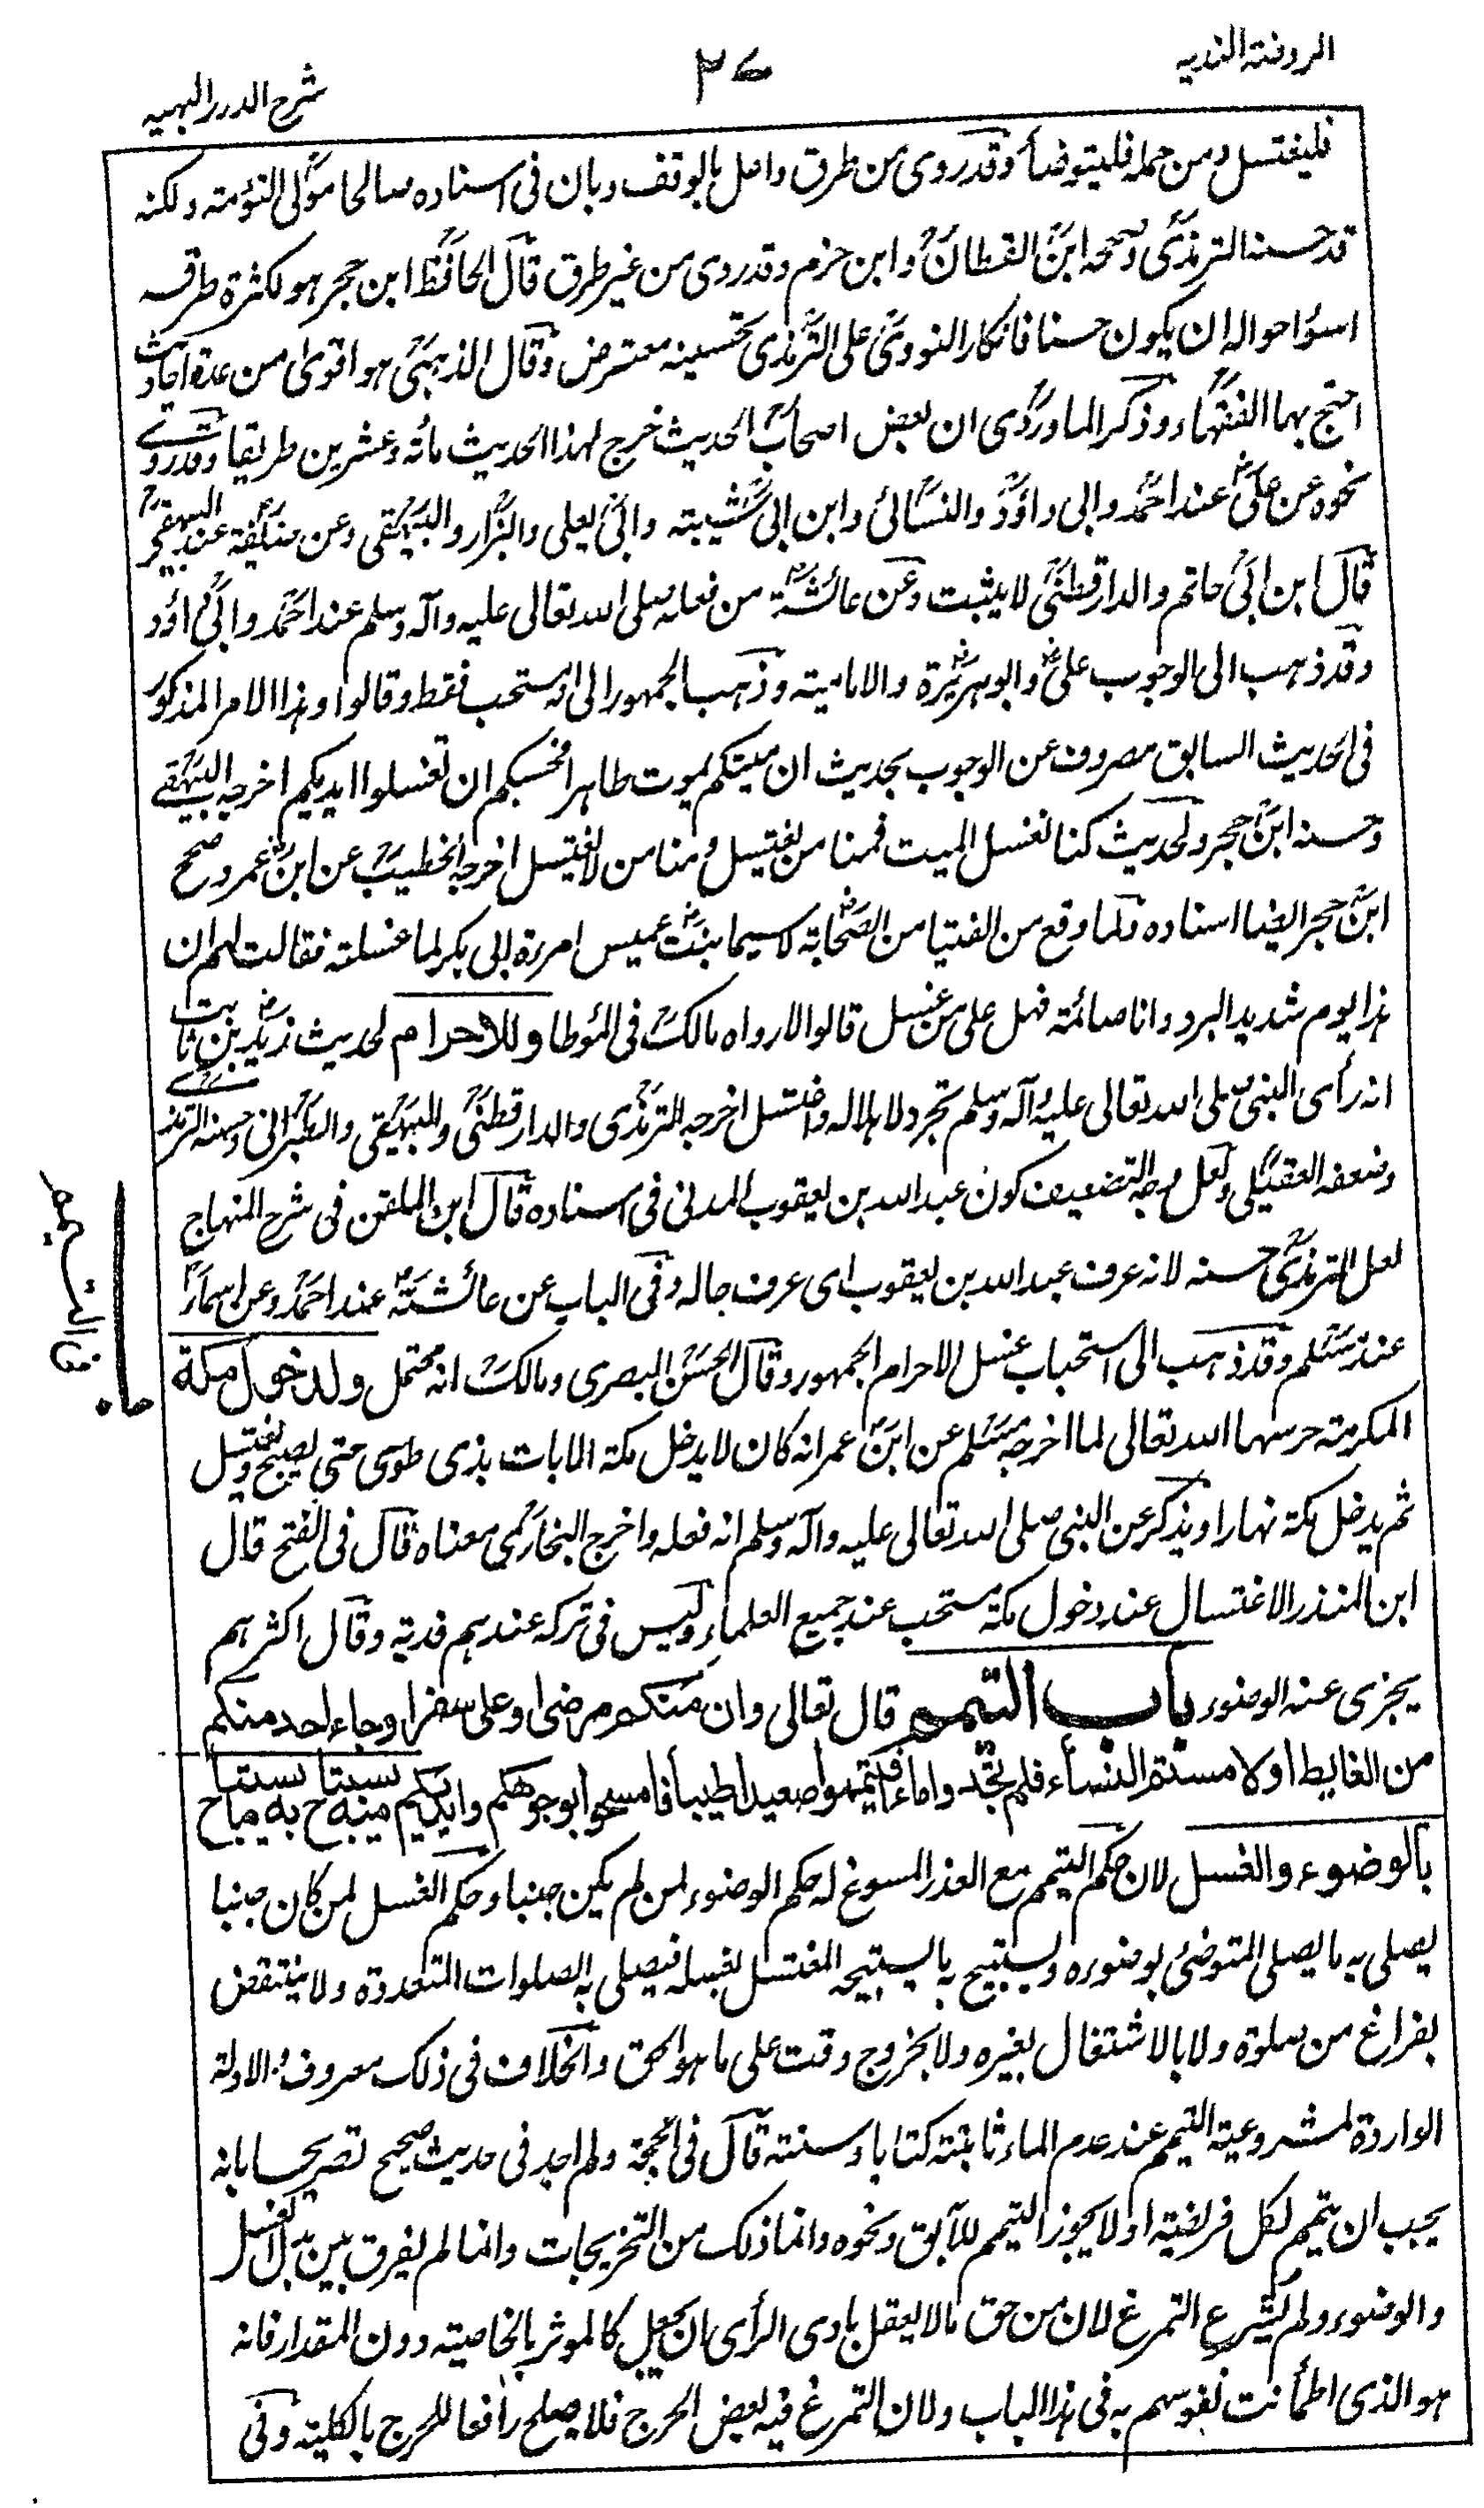 الروضة الندیہ
٢٧
شرح الدرر البہیہ
فلیغتسل ومن حملہ فلیتوضأ وقد روی من طرق واعل بالوقف وبان فی اسنادہ صالحا مولی التوٴمتہ ولکنہ
قد حسنہ الترمذی وصححہ ابن القطان وابن حزم وقد روی من غیر طرق قال الحافظ ابن حجر ہو لکثرة طرقہ
اسوٴ احوالہ ان یکون حسنا فانکار النووی علی الترمذی تحسینہ معترض وقال الذہبی ہو اقوی من عدة احادیث
احتج بہا الفقہاء وذکر الماوردی ان بعض اصحاب الحدیث خرج لہذا الحدیث مائة وعشرین طریقا وقد روی
نحوہ عن علی عند احمد وابی داوٴد والنسائی وابن ابی شیبتہ وابی یعلی والبزار والبیہقی وعن حذیفة عند البیہقی
قال ابن ابی حاتم والدارقطنی لا یثبت وعن عائشة من فعلہ صلی اللہ تعالی علیہ وآلہ وسلم عند احمد وابی داوٴد
وقد ذہب الی الوجوب علی وابو ہریرة والامامیتہ وذہب الجمہور الی انہ مستحب فقط وقالوا وہذا الامر المذکور
فی الحدیث السابق مصروف عن الوجوب بحدیث ان میتکم یموت طاہرا فحسبکم ان تغسلوا ایدیکم اخرجہ البیہقی
وحسنہ ابن حجر ولحدیث کنا نغسل المیت فمنا من یغتسل ومنا من لا یغتسل اخرجہ الخطیب عن ابن عمر وصحح
ابن حجر ایضا اسنادہ ولما وقع من الفتیا من الصحابة لا سیما بنت عمیس امرءة ابی بکر لما غسلتہ فقالت لہم ان
ہذا یوم شدید البرد وانا صائمتہ فہل علی من غسل قالوا لا رواہ مالک فی الموٴطا وللاحرام لحدیث زید بن ثابت
انہ رأی النبی صلی اللہ تعالی علیہ وآلہ وسلم تجرد لاہلالہ واغتسل اخرجہ الترمذی والدارقطنی والبیہقی والطبرانی وحسنہ الترمذی
وضعفہ العقیلی ولعل وجہ التضعیف کون عبد اللہ بن یعقوب المدنی فی اسنادہ قال ابن الملقن فی شرح المنہاج
لعل الترمذی حسنہ لانہ عرف عبد اللہ بن یعقوب ای عرف حالہ وفی الباب عن عائشتہ عند احمد وعن اسماء
عند مسلم وقد ذہب الی استحباب غسل الاحرام الجمہور وقال الحسن البصری ومالک انہ محتمل ولدخول مکة
المکرمتہ حرسہا اللہ تعالی لما اخرجہ مسلم عن ابن عمر انہ کان لا یدخل مکة الا بات بذی طوی حتی یصبح ویغتسل
ثم یدخل مکة نہارا ویذکر عن النبی صلی اللہ تعالی علیہ وآلہ وسلم انہ فعلہ واخرج البخاری معناہ قال فی الفتح قال
ابن المنذر الاغتسال عند دخول مکة مستحب عند جمیع العلماء ولیس فی ترکہ عندہم فدیة وقال اکثرہم
یجزی عنہ الوضوء باب التیمم قال تعالی وان کنتم مرضی او علی سفر او جاء احد منکم
من الغایط او لامستم النساء فلم تجدوا ماء فتیمموا صعیدا طیبا فامسحوا بوجوهکم وایدیکم منه یستباح به ما یستباح
بالوضوء والغسل لان حکم التیمم مع العذر المسوغ لہ حکم الوضوء لمن لم یکن جنبا وحکم الغسل لمن کان جنبا
یصلی بہ ما یصلی المتوضیٴ بوضوءہ ویستبیح بہ ما یستبیحہ المغتسل بغسلہ فیصلی بہ الصلوات المتعددة ولا ینتقض
بفراغ من صلوة ولا بالاشتغال بغیرہ ولا بخروج وقت علی ما ہو الحق والخلاف فی ذلک معروف والادلة
الواردة لمشروعیة التیمم عند عدم الماء ثابتة کتابا وسنتہ قال فی الحجة ولم اجد فی حدیث صحیح تصریحا بانہ
یجب ان یتیمم لکل فریضیة او لا یجوز التیمم للآبق ونحوہ وانما ذلک من التخریجات وانما لم یفرق بین بدل الغسل
والوضوء ولم یشرع التمرغ لان من حق ما لا یعقل بادی الرأی ان یجعل کالموثر بالخاصیتہ دون المقدار فانہ
ہو الذی اطمأنت نفوسہم بہ فی ہذا الباب ولان التمرغ فیہ بعض الحرج فلا یصلح رافعا للحرج بالکلیتہ وفی